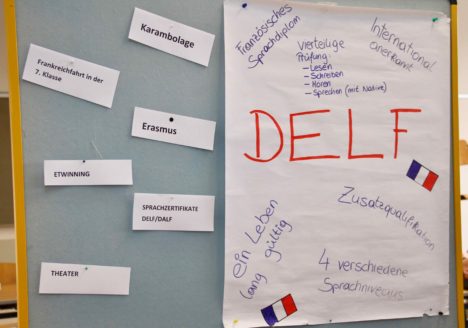 Karambolage
Frankreichfahrt in der
7. Klasse
Erasmus
ETWINNING
SPRACHZERTIFIKATE
DELF/DALF
THEATER
Französisches
Sprachdiplom
Vierteilige
Prüfung
- Lesen
- Schreiben
- Hören
- Sprechen (mit Native)
International
anerkannt
DELF
Zusatzqualifikation
ein Leben
lang gültig
4 verschiedene
Sprachniveaus